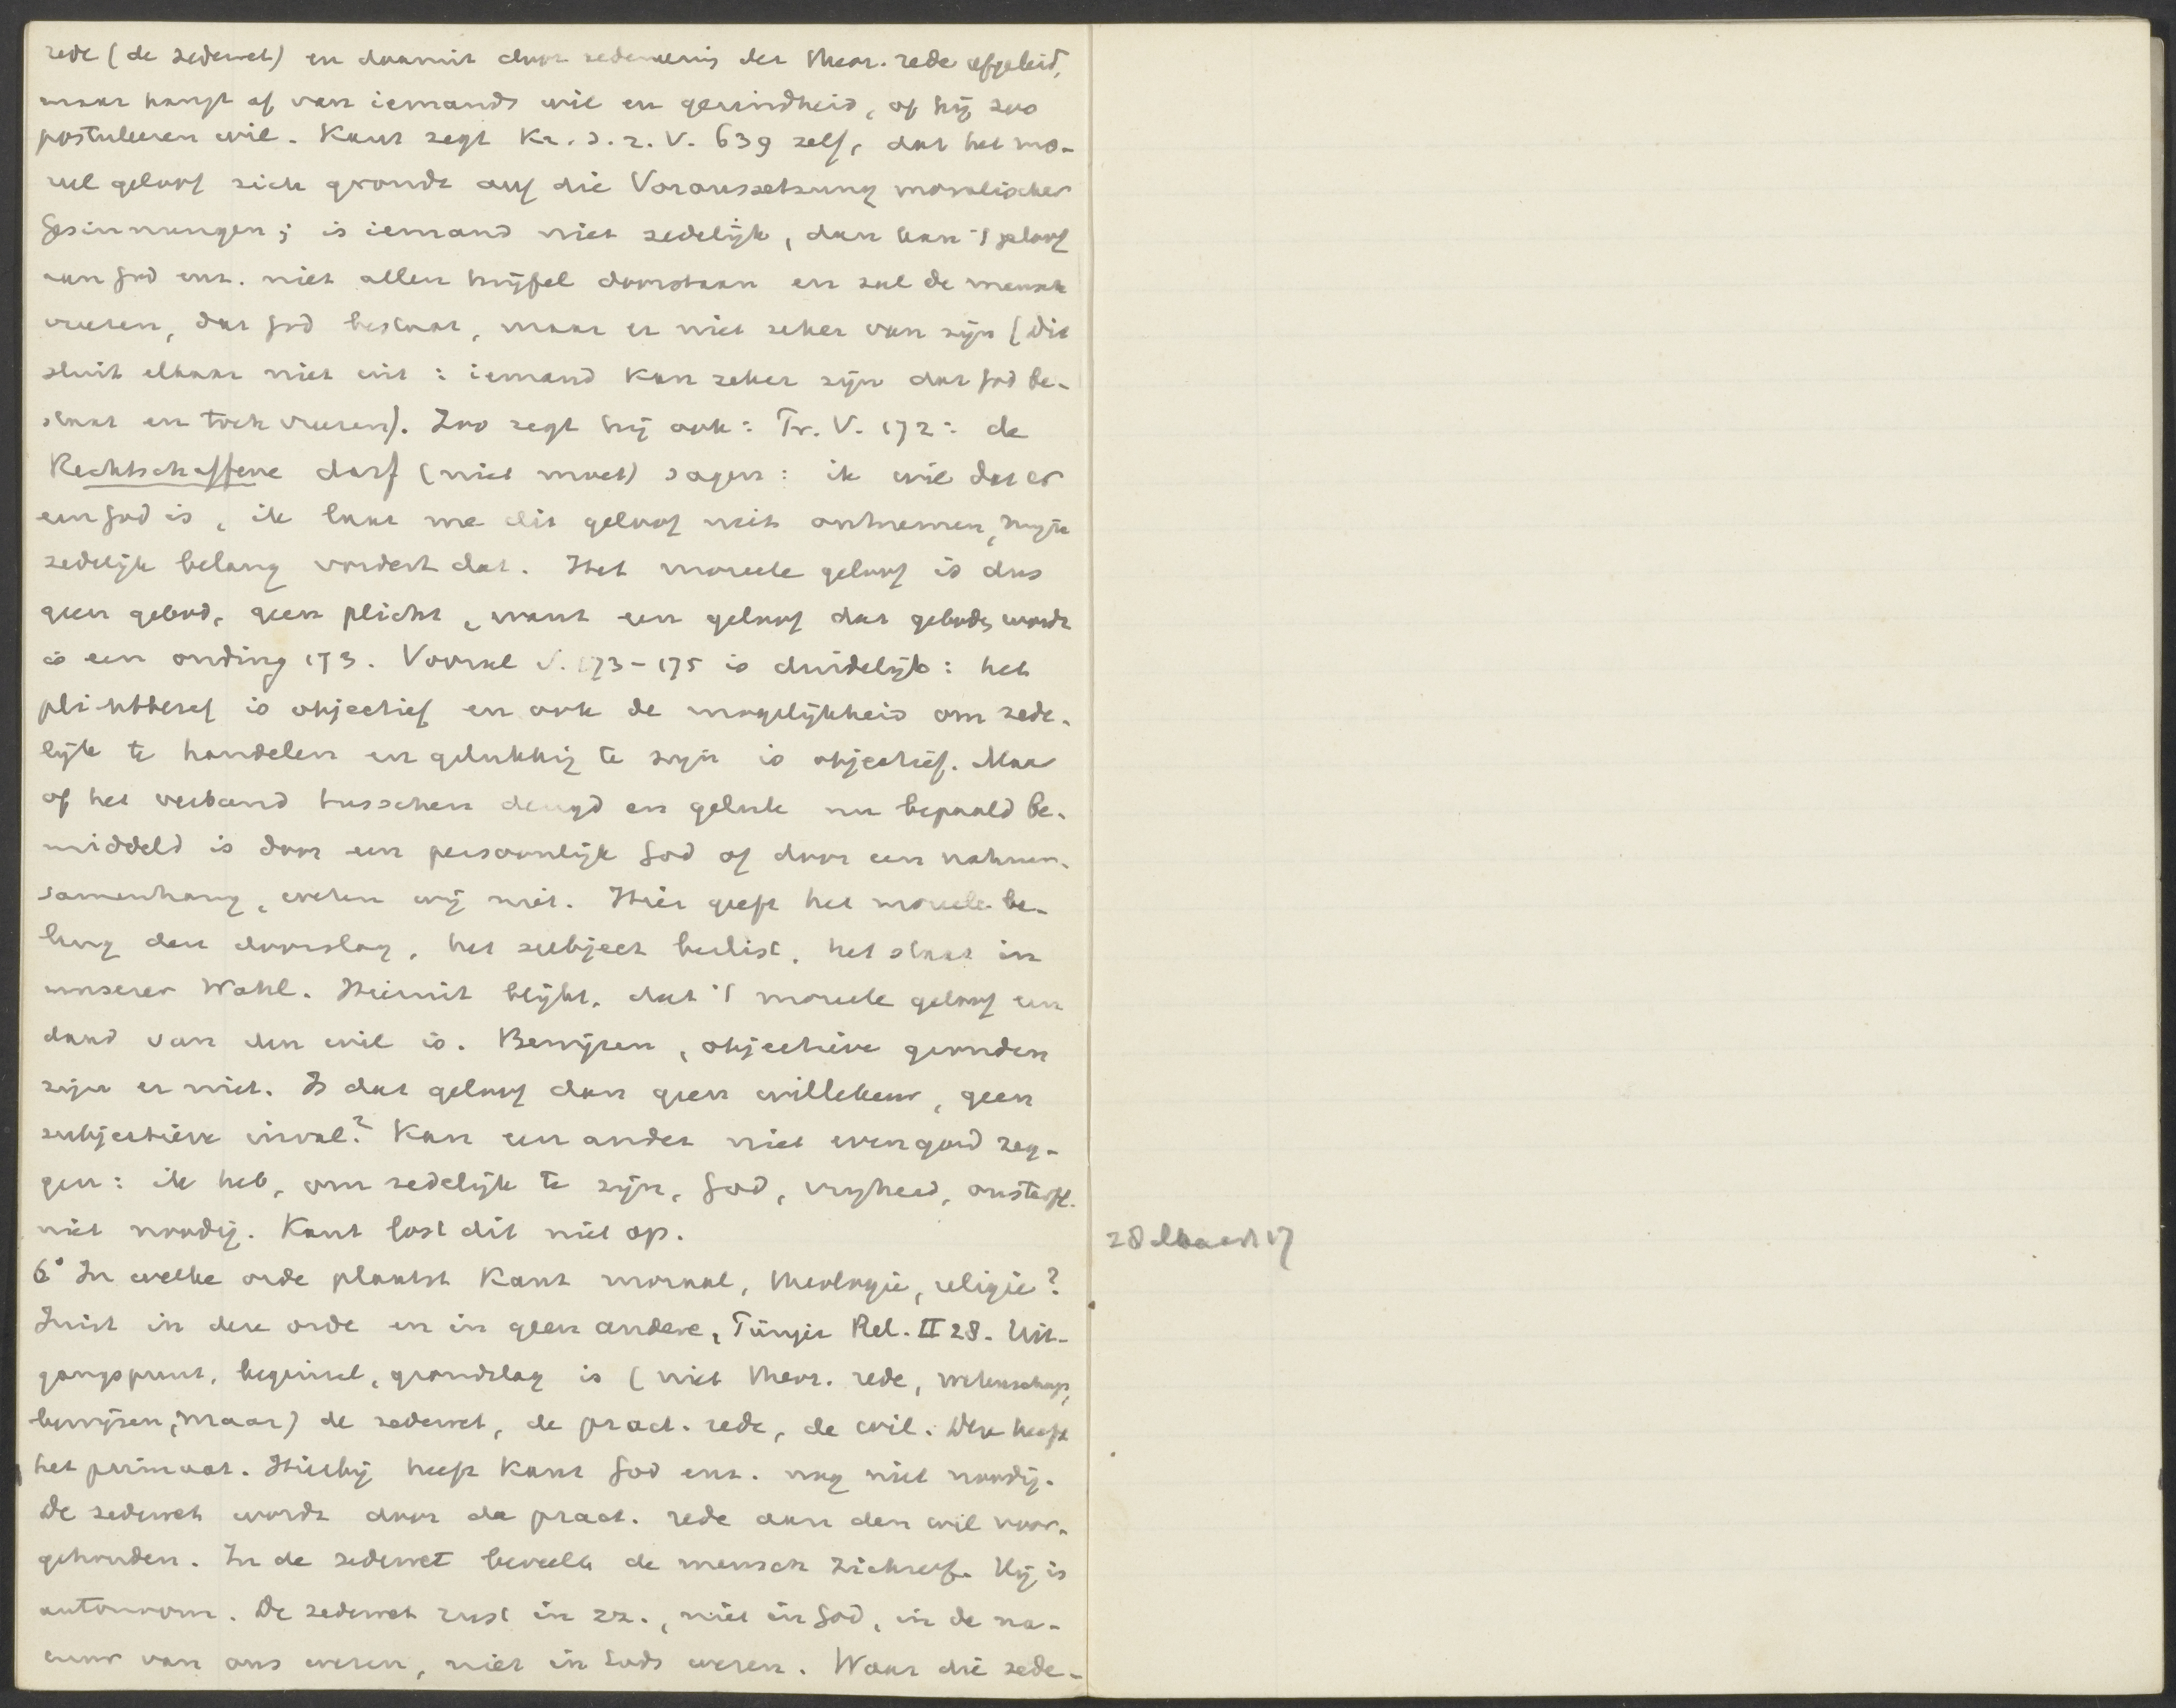 rede (de zedewet) en daarmit door redeneering der theor. rede afgeleid,
maar hangt af van iemands wil en gezindheid, of hij zoo
postuleeren wil. Kant zegt Kr. d. r. V. 639 zelf, dat het mo-
reel geloof zich grondt auf die Voraussetzung moralischer
Gesinnungen; is iemand niet zedelijk, dan kan 't geloof
aan God enz. niet allen twijfel doorstaan en zal de mensch
vreezen, dat God bestaat, maar er niet zeker van zijn (dit
sluit elkaar niet uit: iemand kan zeker zijn dat God be-
staat en toch vreezen). Zoo zegt hij ook: Pr. V. 172: de
Rechtschaffene darf (niet moet) sagen: ik wil dat er
een God is, ik laat me dit geloof niet ontnemen, mijn
zedelijk belang vordert dat. Het moreele geloof is dus
geen gebod, geen plicht, want een geloof dat geboden wordt
is een onding 173. Vooral V. 173-175 is duidelijk: het
plichtbesef is objectief en ook de mogelijkheid om zede-
lijk te handelen en gelukkig te zijn is objectief. Maar
of het verband tusschen deugd en geluk nu bepaald be-
middeld is door een persoonlijk God of door een natuur-
samenhang, weten wij niet. Hier geeft het moreele be-
lang den doorslag, het subject beslist, het staat in
unserer Wahl. Hieruit blijkt, dat 't moreele geloof een
daad van den wil is. Bewijzen, objectieve gronden
zijn er niet. Is dat geloof dan geen willekeur, geen
subjectieve inval? Kan een ander niet evengoed zeg-
gen: ik heb, om zedelijk te zijn, God, vrijheid, onsterfl.
niet noodig. Kant lost dit niet op.
6° In welke orde plaatst Kant moraal, theologie, religie?
Juist in deze orde en in geen andere, Pünjer Rel. II 28. Uit-
gangspunt, beginsel, grondslag is (niet theor. rede, wetenschap,
bewijzen, maar) de zedewet, de pract. rede, de wil. Deze heeft
het primaat. Hierbij heeft Kant God enz. nog niet noodig.
De zedewet wordt door de pract. rede aan den wil voor-
gehouden. In de zedewet beveelt de mensch zichzelf. Hij is
autonoom. De zedewet rust in zz., niet in God, in de na-
tuur van ons wezen, niet in Gods wezen. Waar die zede-
28 Maart 17